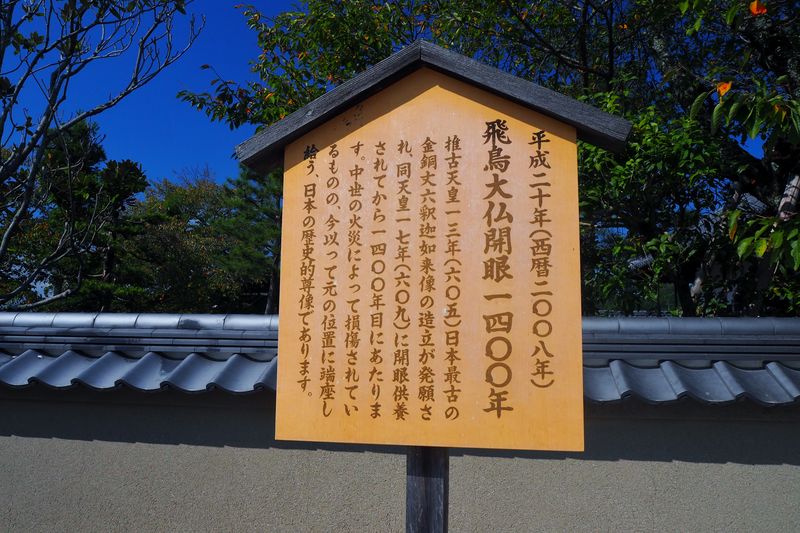 平成二十年(西暦二〇〇八年)
飛鳥大仏開眼一四〇〇年
推古天皇一三年(六〇五)日本最古の
金銅丈六釈迦如来像の造立が発願さ
れ、同天皇一七年(六〇九)に開眼供養
されてから一四〇〇年目にあたりま
す。中世の火災によって損傷されてい
るものの、今以って元の位置に端座し
給う、日本の歴史的尊像であります。